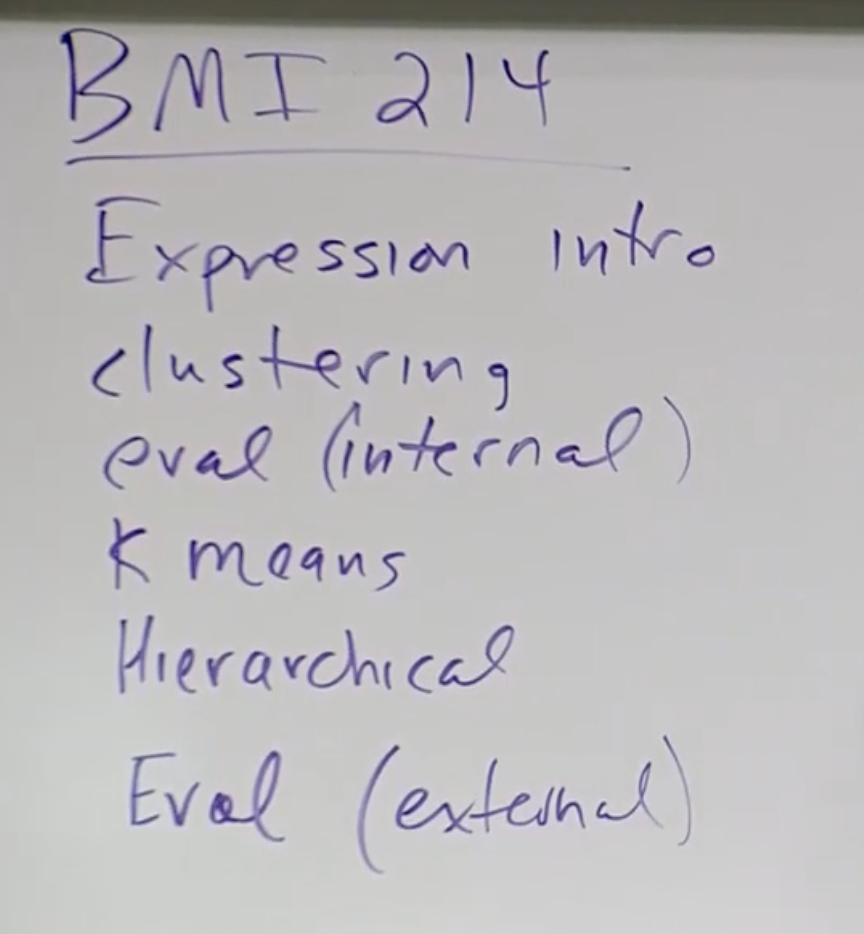 BMI 214
Expression intro
clustering
eval (internal)
K means
Hierarchical
Eval (external)